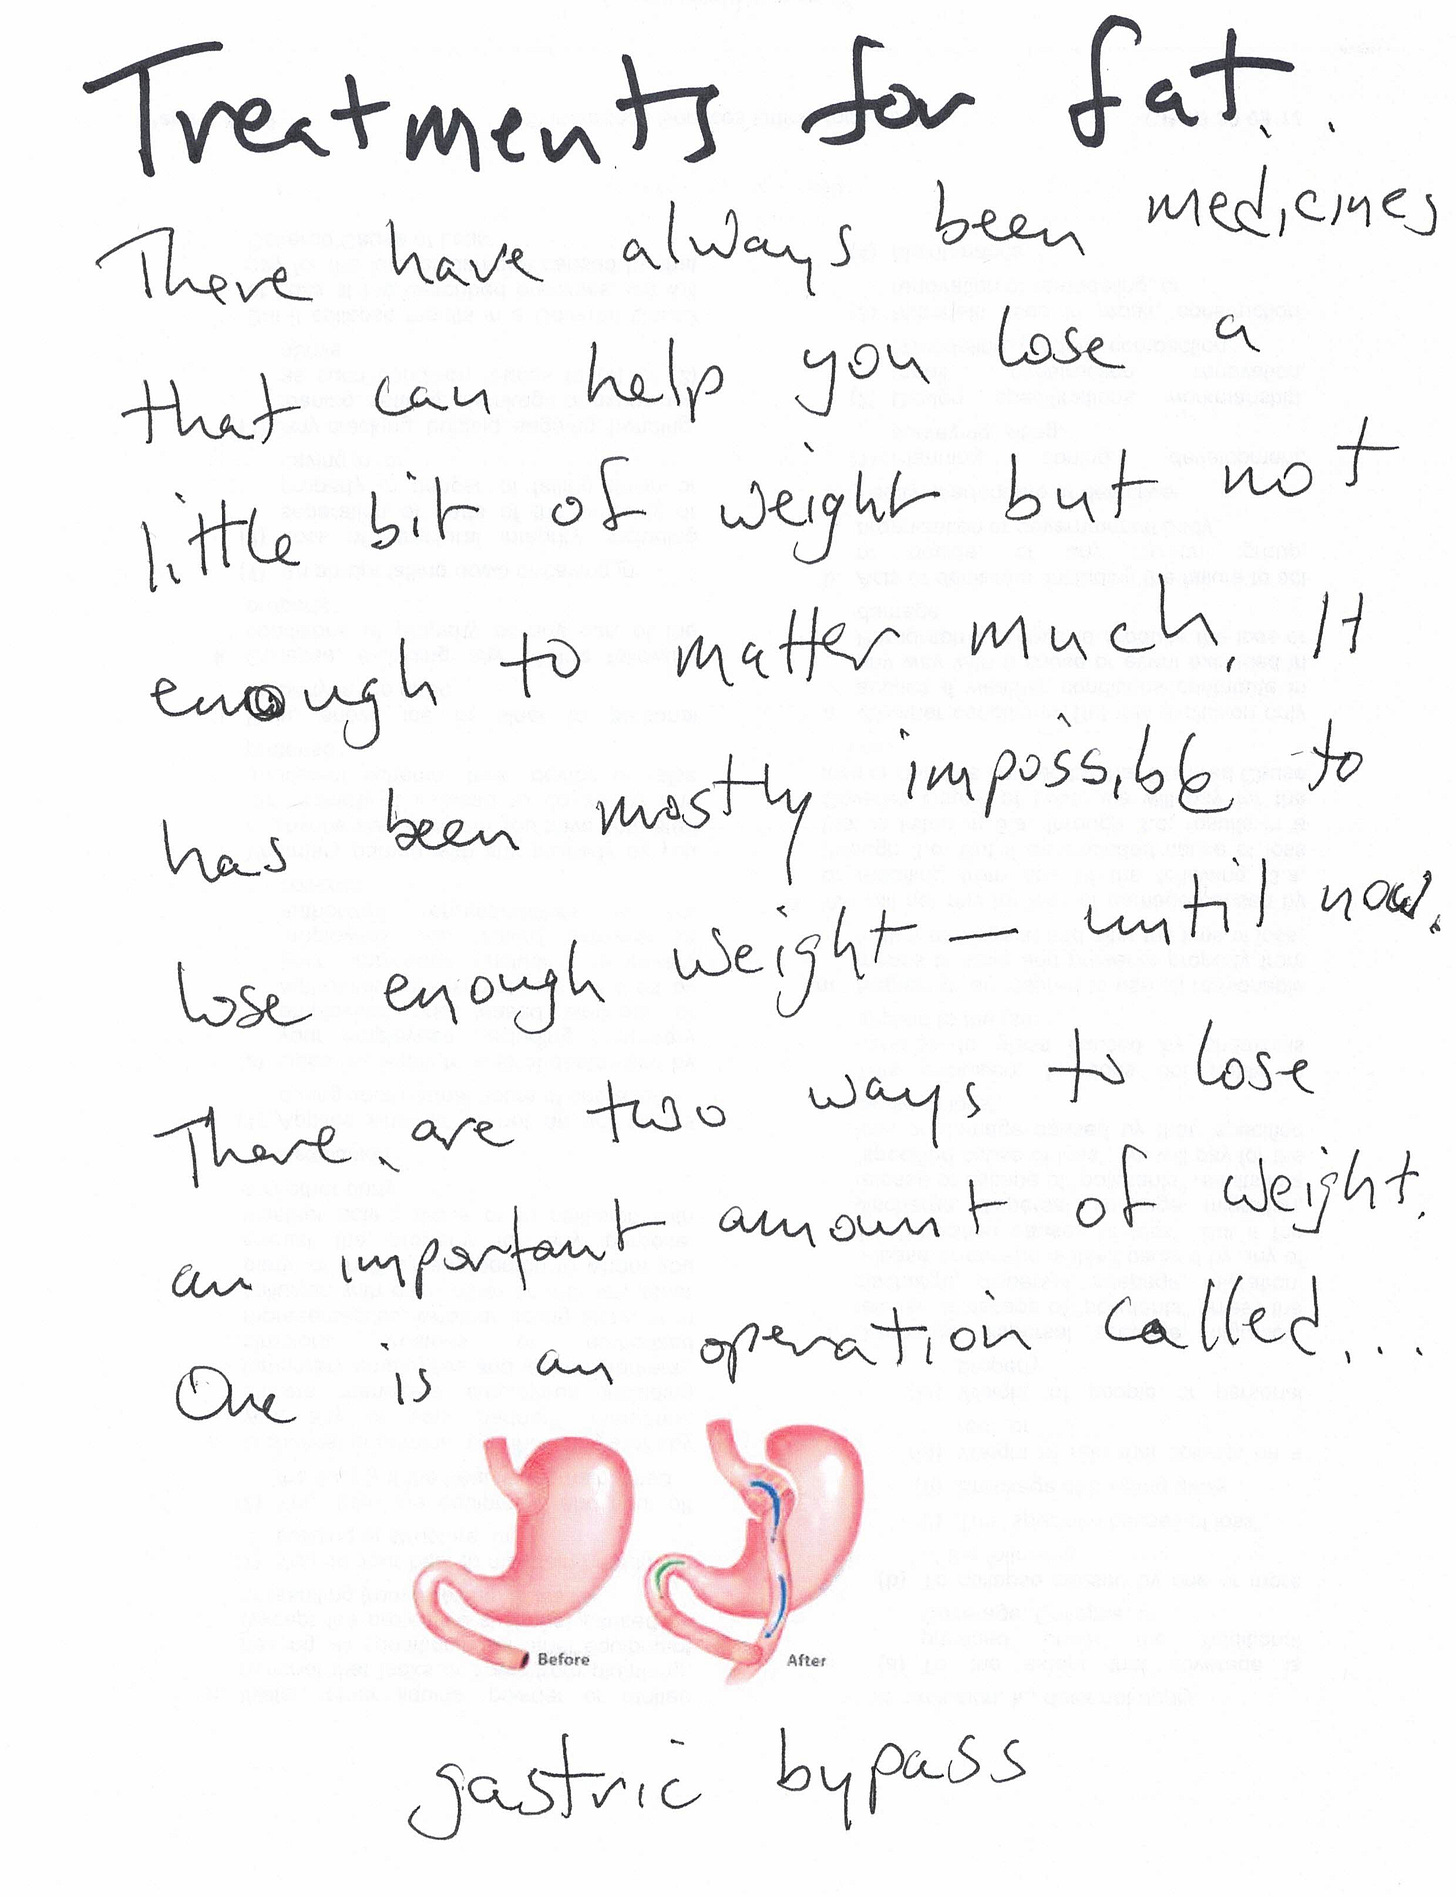 Treatments for fat.
There have always been medicines
that can help you lose a
little bit of weight but not
enough to matter much. It
has been mostly impossible to
lose enough weight — until now.
There are two ways to lose
an important amount of weight.
One is an operation called...
Before After
gastric bypass